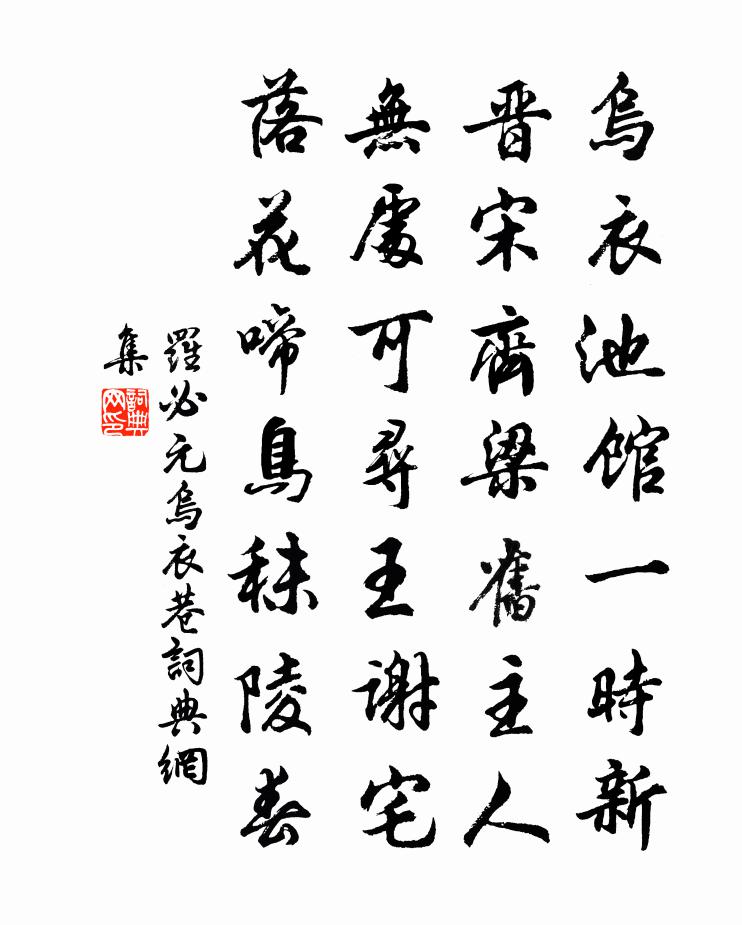 烏衣池館一時新
晋宋齊梁舊主人
無處可尋王謝宅
落花啼鳥秣陵春
羅必元烏衣巷詞典網
集
詞典
网印